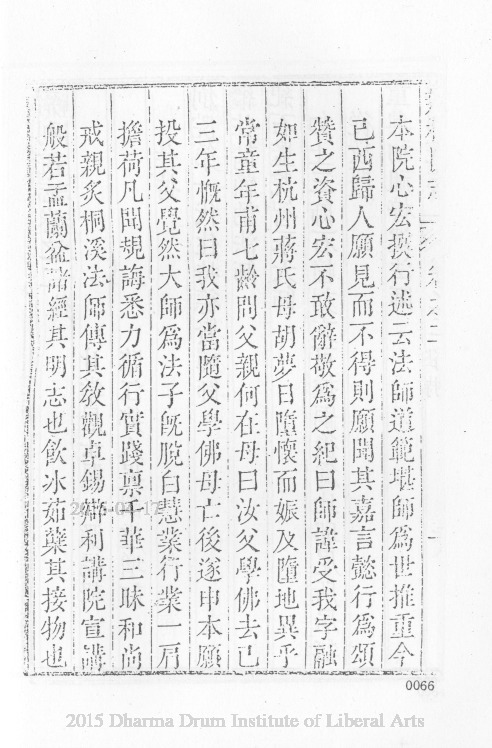 本院心宏撰行述云法師道範堪師爲世推重今
已西歸人願見而不得則願聞其嘉言懿行爲頌
贊之資心宏不敢辭敬爲之紀曰師諱受我字融
如生杭州蔣氏母胡夢日墮懷而娠及墮地異乎
常童年甫七齡問父親何在母曰汝父學佛去已
三年慨然曰我亦當隨父學佛母亡後遂申本願
投其父覺然大師爲法子旣脫白慧業行業一肩
擔荷凡聞規誨悉力循行實踐稟華三昧和尚
戒親炙桐溪法師傳其敎觀卓錫辯利講院宣講
般若盂蘭盆諸經其明志也飮冰茹蘗其接物也
0066
2015 Dharma Drum Institute of Liberal Arts